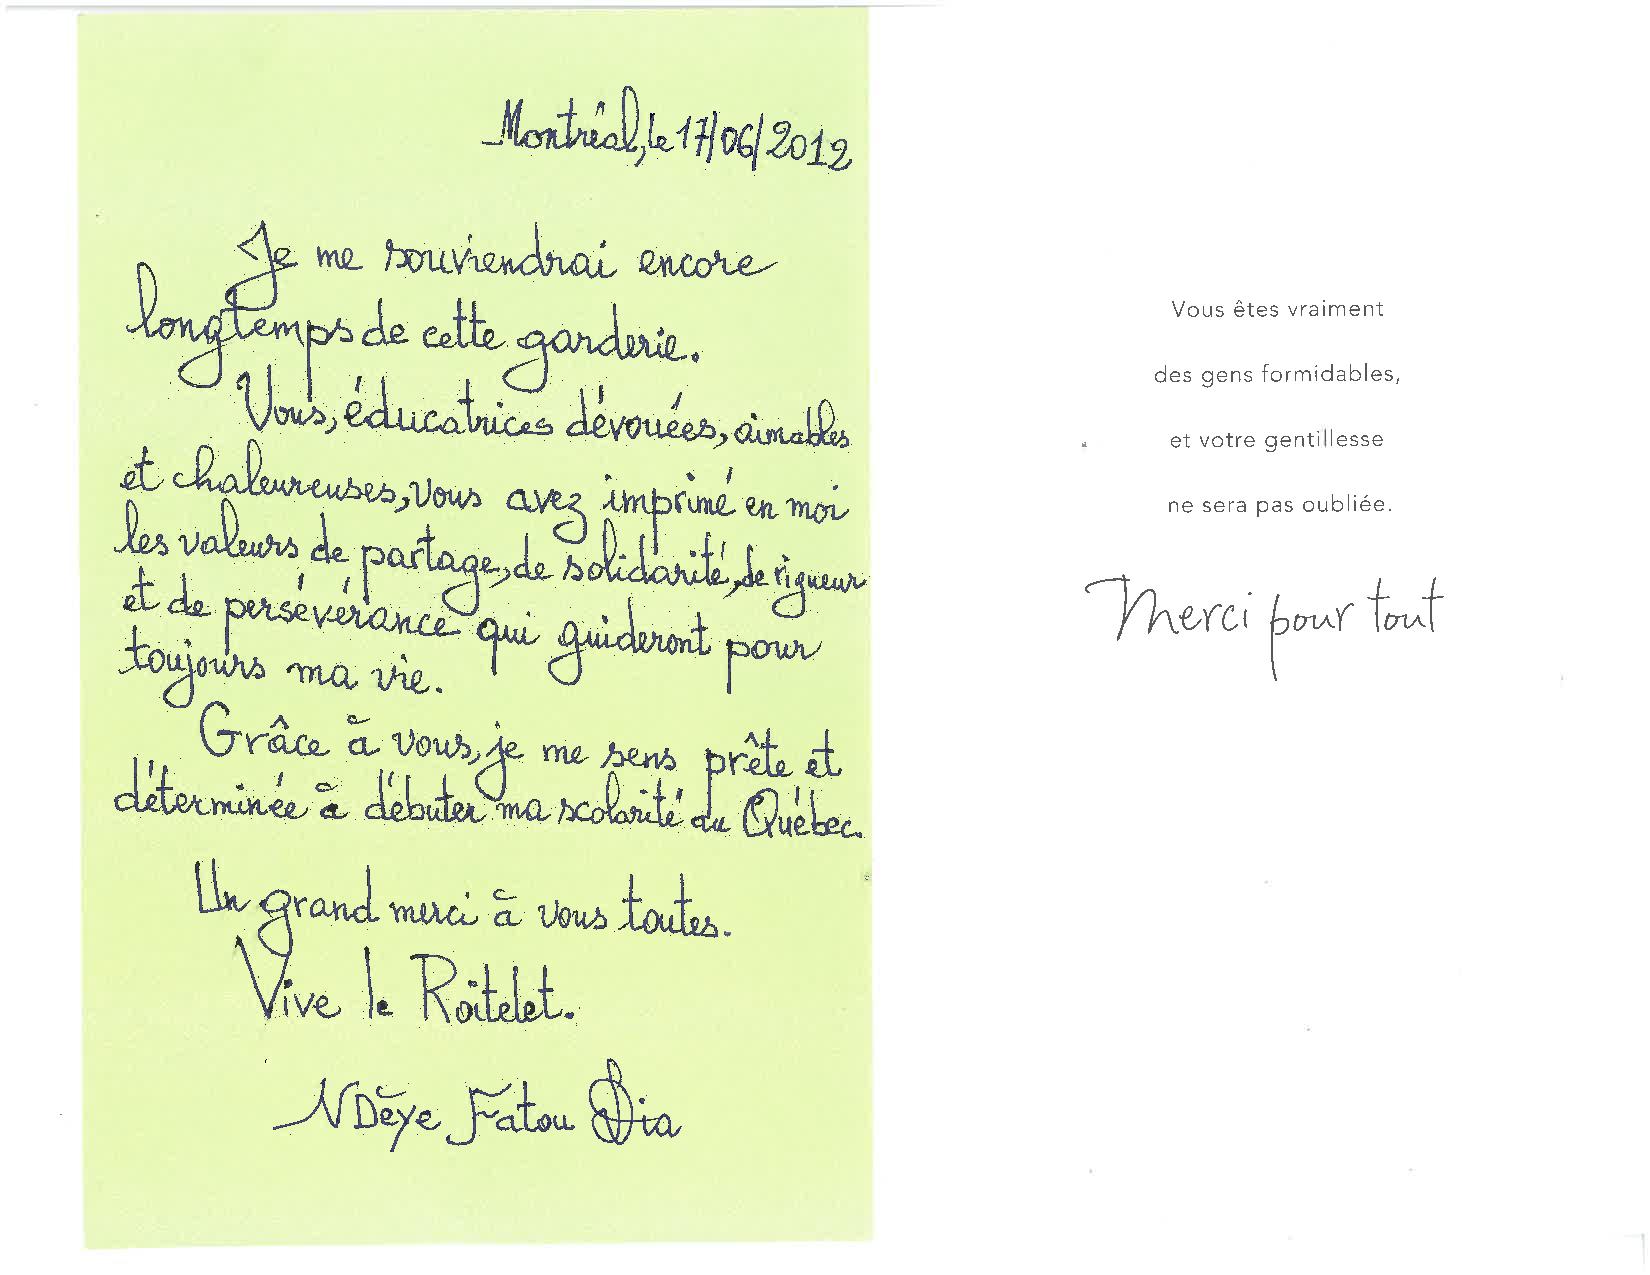 Montréal, le 17/06/2012
Je me souviendrai encore
longtemps de cette garderie.
Vous, éducatrices dévouées, aimables
et chaleureuses, vous avez imprimé en moi
les valeurs de partage, de solidarité, de rigueur
et de persévérance qui guideront pour
toujours ma vie.
Grâce à vous, je me sens prête et
déterminée à débuter ma scolarité au Québec.
Un grand merci à vous toutes.
Vive le Roitelet.
NDèye Fatou Dia
Vous êtes vraiment
des gens formidables,
et votre gentillesse
ne sera pas oubliée.
Merci pour tout